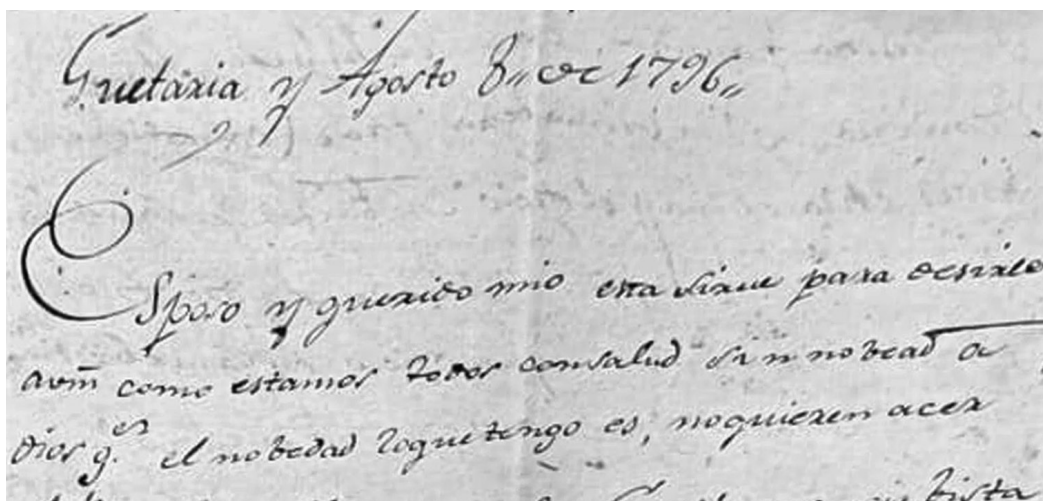 Guetaria y Agosto 8,, de 1796,,
Esposo y querido mio esta sirue para desirle
avm̃ como estamos todos consalud sin nobead a
Dios g.^as el nobedad loque tengo es, noquieren acer
fista